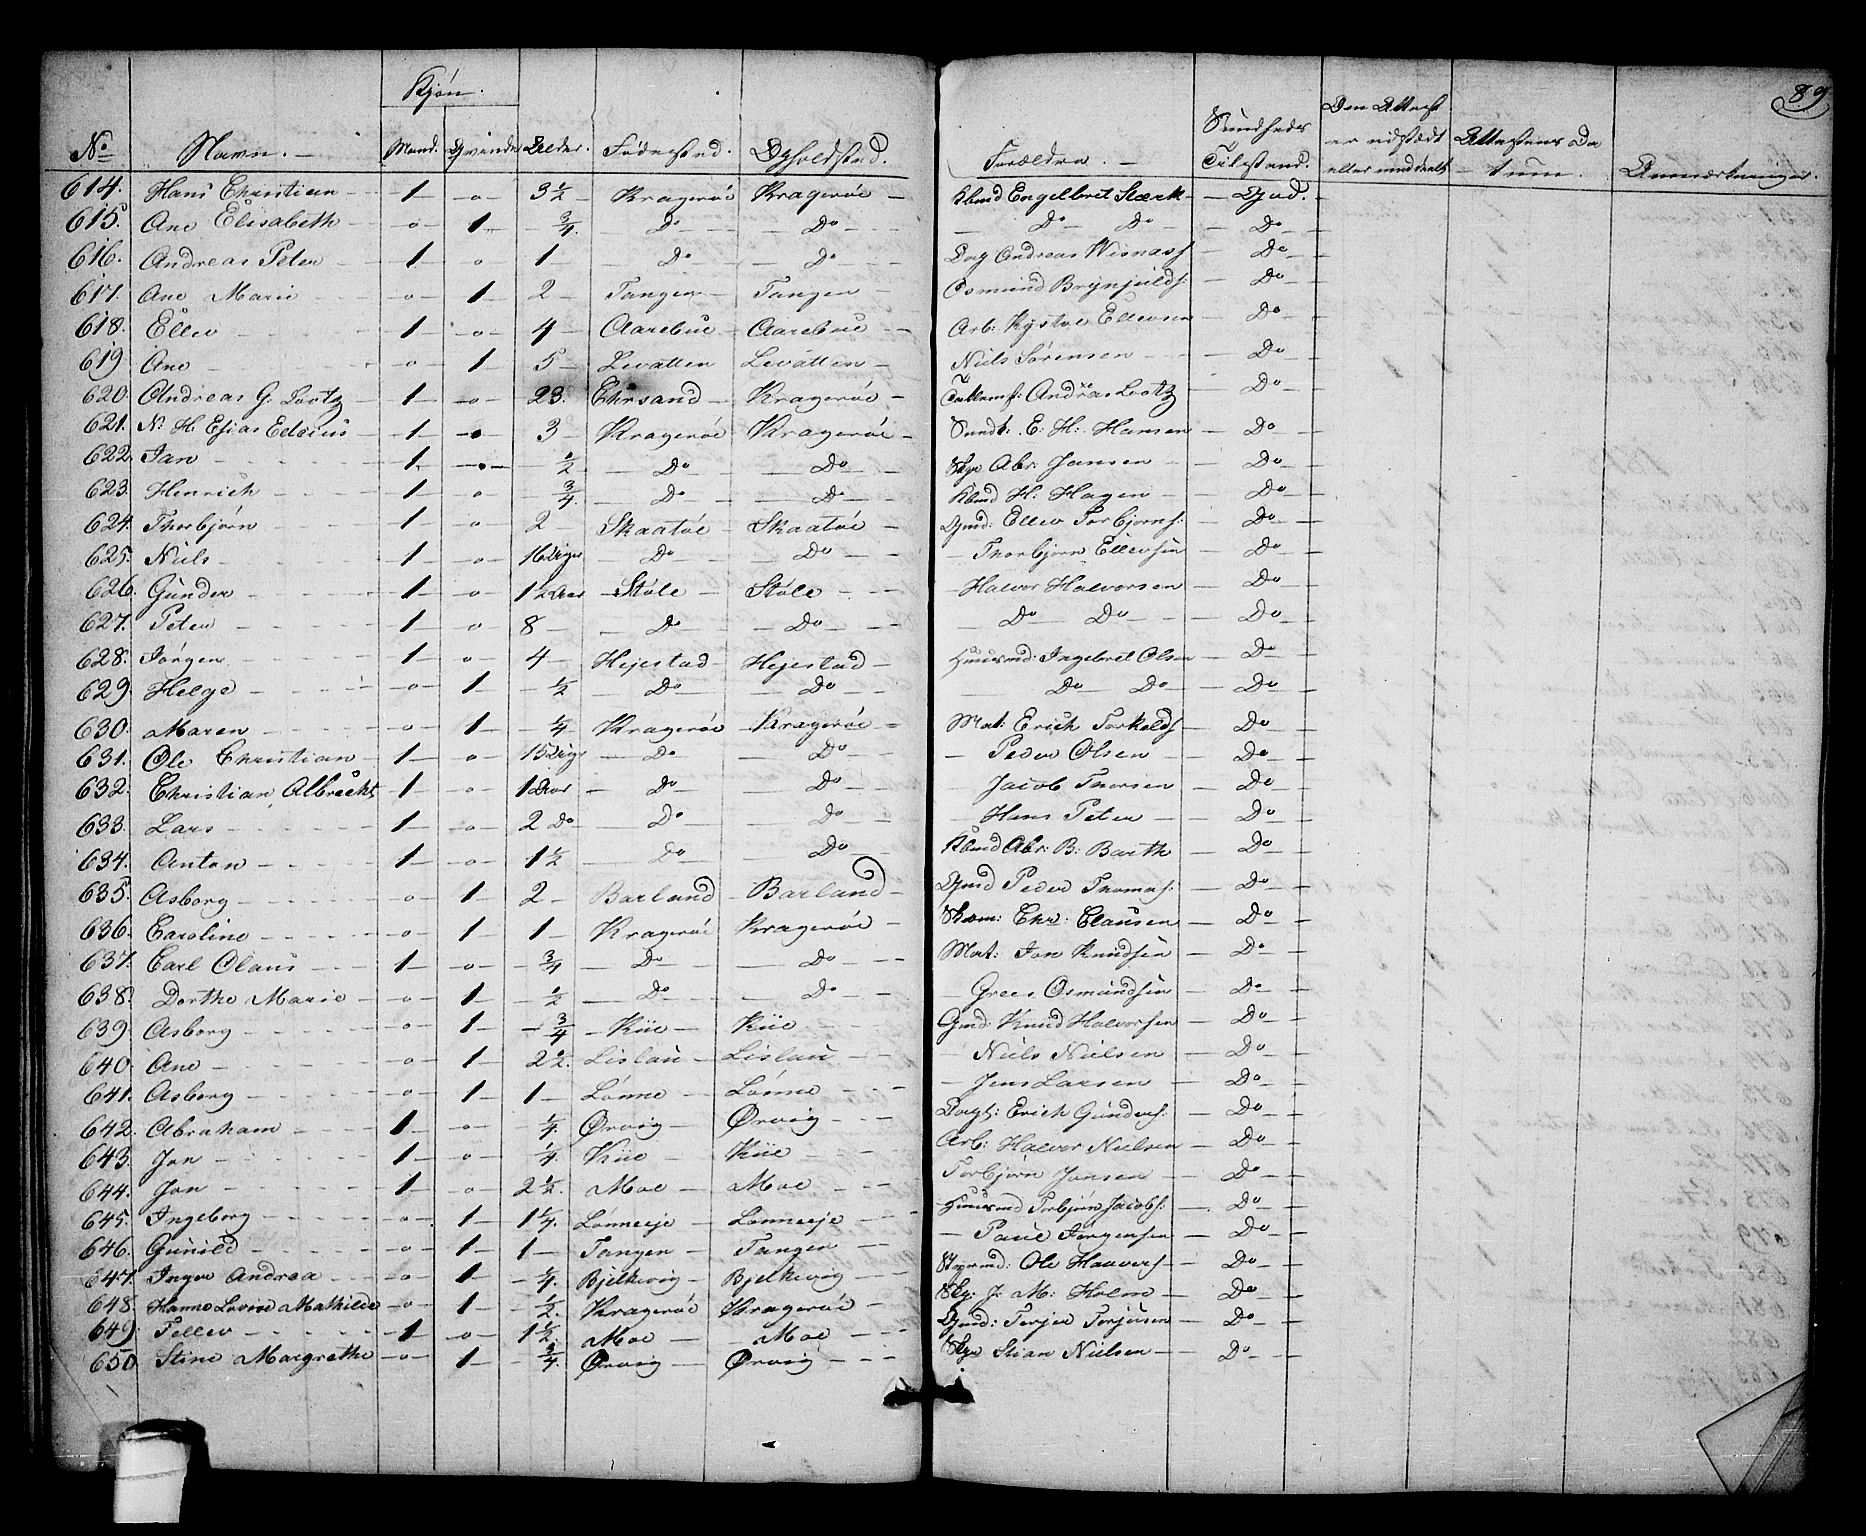 89
Kjön.
Den Attest
Sundheds
er udstædt
Attestens Da
No Navn. Mand. Qvinde Alder. Födested. Opholdsted. Forældre. Tilstand. eller meddeelt tum. Anmærkninger.
614. Hans Christian 1 0 3 1/2 Kragerøe Kragerøe Kbmd Engelbret Stærk God.
615. Ane Elisabeth 0 1 3/4. Do Do Do Do Do
616. Andreas Peter 1 0 1 Do Do Dag Andreas Do
617. Ane Marie 0 1 2 Tangen Tangen Osmund Brynjulds: Do
618. Ellev 1 0 4 Aarebue Aarebue Arb: Kystol Ellevsen Do
619 Ane 0 1 5 Levatten Levatten Niels Sørensen Do
620. Andreas G. Lootz 1 0 23. Chrsand Kragerøe Andreas Lootz Do
621. N. H. Esias Edzius 1 0 3 Kragerøe Kragerøe E: H: Hansen Do
622 Jan 1 0 1/2 Do Do Skp Abr: Jansen Do
623. Henrich 1 0 3/4. Do Do Kbmd H: Hagen Do
624. Thorbjørn 1 0 2 Skaatøe Skaatøe Gmd: Ellev Torbjørns: Do
625. Niels 1 0 16 Uger Do Do Thorbjørn Ellevsen Do
626. Gunder 1 0 1 1/2 Aar Støle Støle Halvor Halvorsen Do
627. Peter 1 0 8 Do Do Do Do Do
628. Jørgen 1 0 4 Hejestad Hejestad Huusmd: Ingebret Olsen Do
629. Helge 0 1 1/2 Do Do Do Do Do
630. Maren 0 1 1/4 Kragerøe Kragerøe Mat: Erich Torkelds Do
631. Ole Christian 1 0 15 Uger Do Do Peder Olsen Do
632. Christian Albrecht 1 0 1 Aar Do Do Jacob Thorsen Do
633. Lars 1 0 2 Do Do Do Hans Peter Do
634. Anton 1 0 1 1/2 Do Do Kbmd Abr: B: Barth Do
635. Asborg 0 1 2 Barland Barland Gmd Peder Thomas: Do
636. Caroline 0 1 1 Kragerøe Kragerøe Skom: Chr: Clausen Do
637. Carl Claus 1 0 3/4 Do Do Mat: Jan Knudsen Do
638. Dorthe Marie 0 1 1/2 Do Do Grees Osmundsen Do
639. Asborg 0 1 3/4 Kiie Kiie Gmd: Knud Halvorsen Do
640. Ane 0 1 2 1/2. Lislau Lislau Niels Nielsen Do
641. Asborg 0 1 1 Lønne Lønne Jens Larsen Do
642. Abraham 1 0 1/4. Ørvig Ørvig Dagl: Erich Gunders: Do
643. Jon 1 0 1/4. Kiie Kiie Arb: Halvor Nielsen Do
644. Jon 1 0 2 1/2. Moe Moe Torbjørn Jonsen Do
645. Ingeborg 0 1 1 1/4. Lønneeje Lønneeje Huusmd Torbjørn Jacobs: Do
646. Gunild 0 1 1 Tangen Tangen Paul Jørgensen Do
647. Inger Andrea 0 1 1/4. Bjelkevig Bjelkevig Ole Haavers: Do
648. Hanne Lovise Mathilde 0 1 1/2. Kragerøe Kragerøe Skp: J: M: Holm Do
649. Tellev 1 0 1 1/2. Moe Moe Gmd: Terjer Torjusen Do
650 Stine Margrethe 0 1 3/4. Ørvig Ørvig Skp Stian Nielsen Do